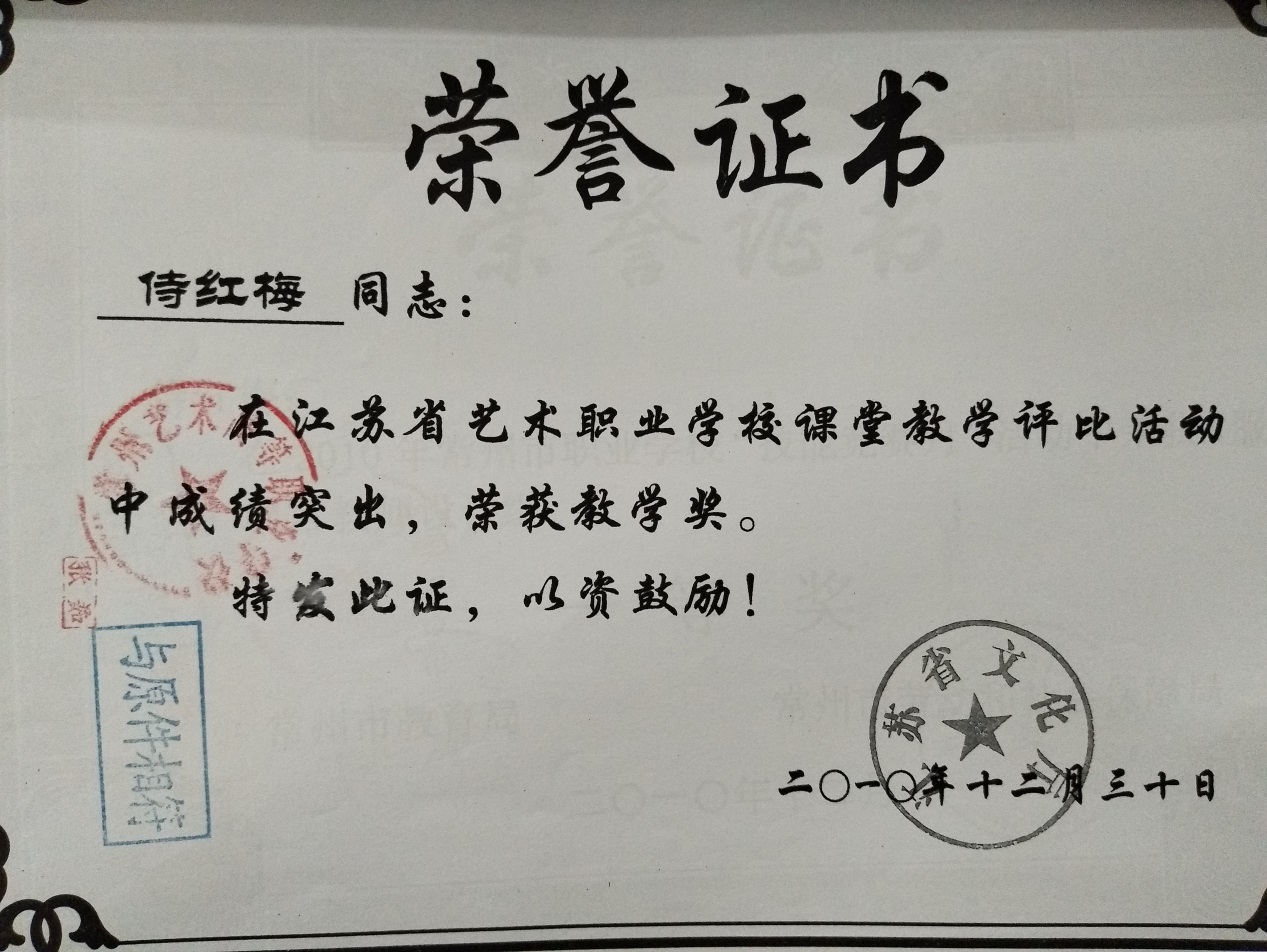 荣誉证书
侍红梅 同志：
在江苏省艺术职业学校课堂教学评比活动
中成绩突出，荣获教学奖。
特发此证，以资鼓励！
与原件相符
江苏省文化厅
二〇一〇年十二月三十日